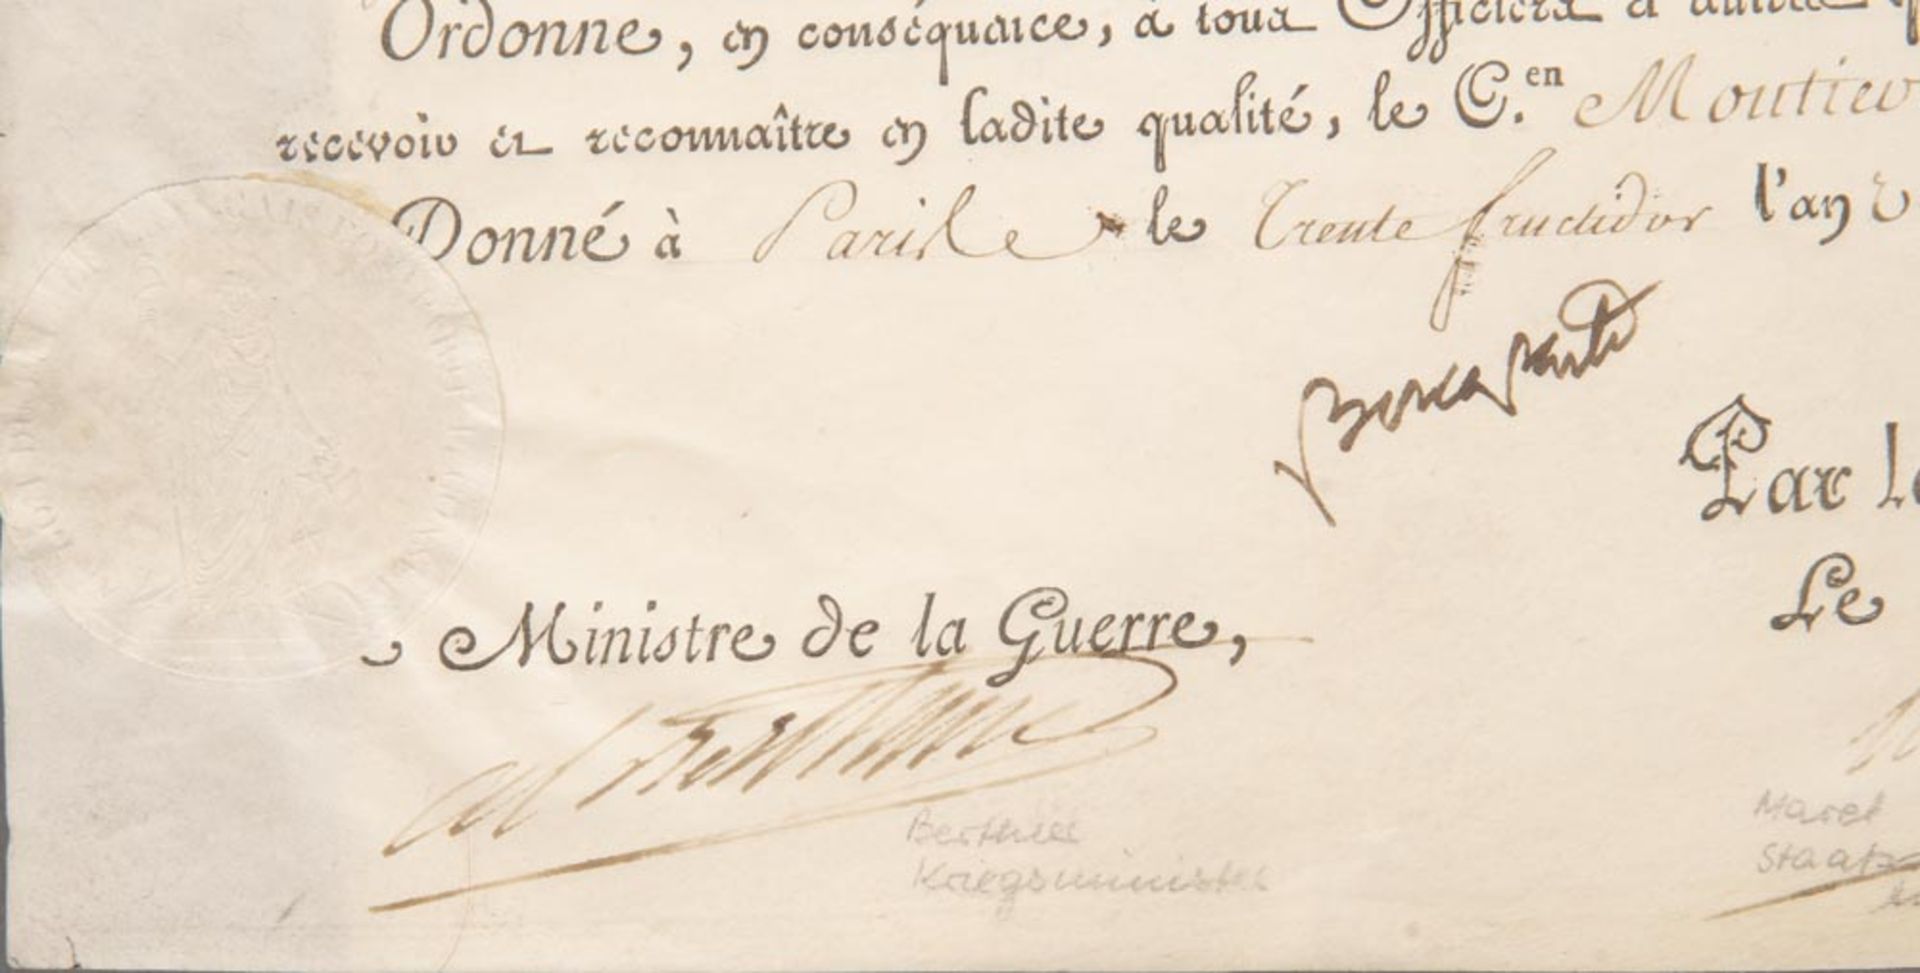 Ordonne, en conséquence, à tous Officiers et autres
recevoir et reconnaître en ladite qualité, le C.en Moutier
Donné à Paris le Trente fructidor l'an
Bonaparte
Par le
Ministre de la Guerre,
Le
al Berthier
Berthier
Kriegsminister
Maret
Staats